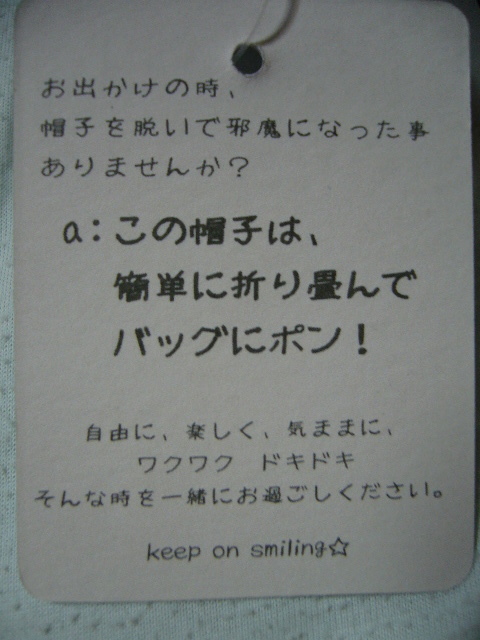 お出かけの時、
帽子を脱いで邪魔になった事
ありませんか？
a：この帽子は、
簡単に折り畳んで
バッグにポン！
自由に、楽しく、気ままに、
ワクワク　ドキドキ
そんな時を一緒にお過ごしください。
keep on smiling☆